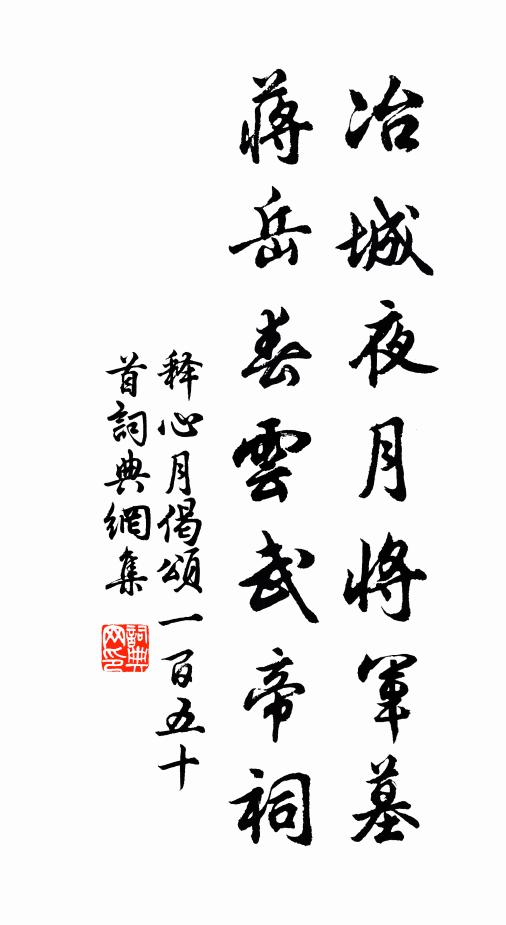 冶城夜月將軍墓
蔣岳春雲武帝祠
释心月偈頌一百五十
首詞典網集
詞典
网印